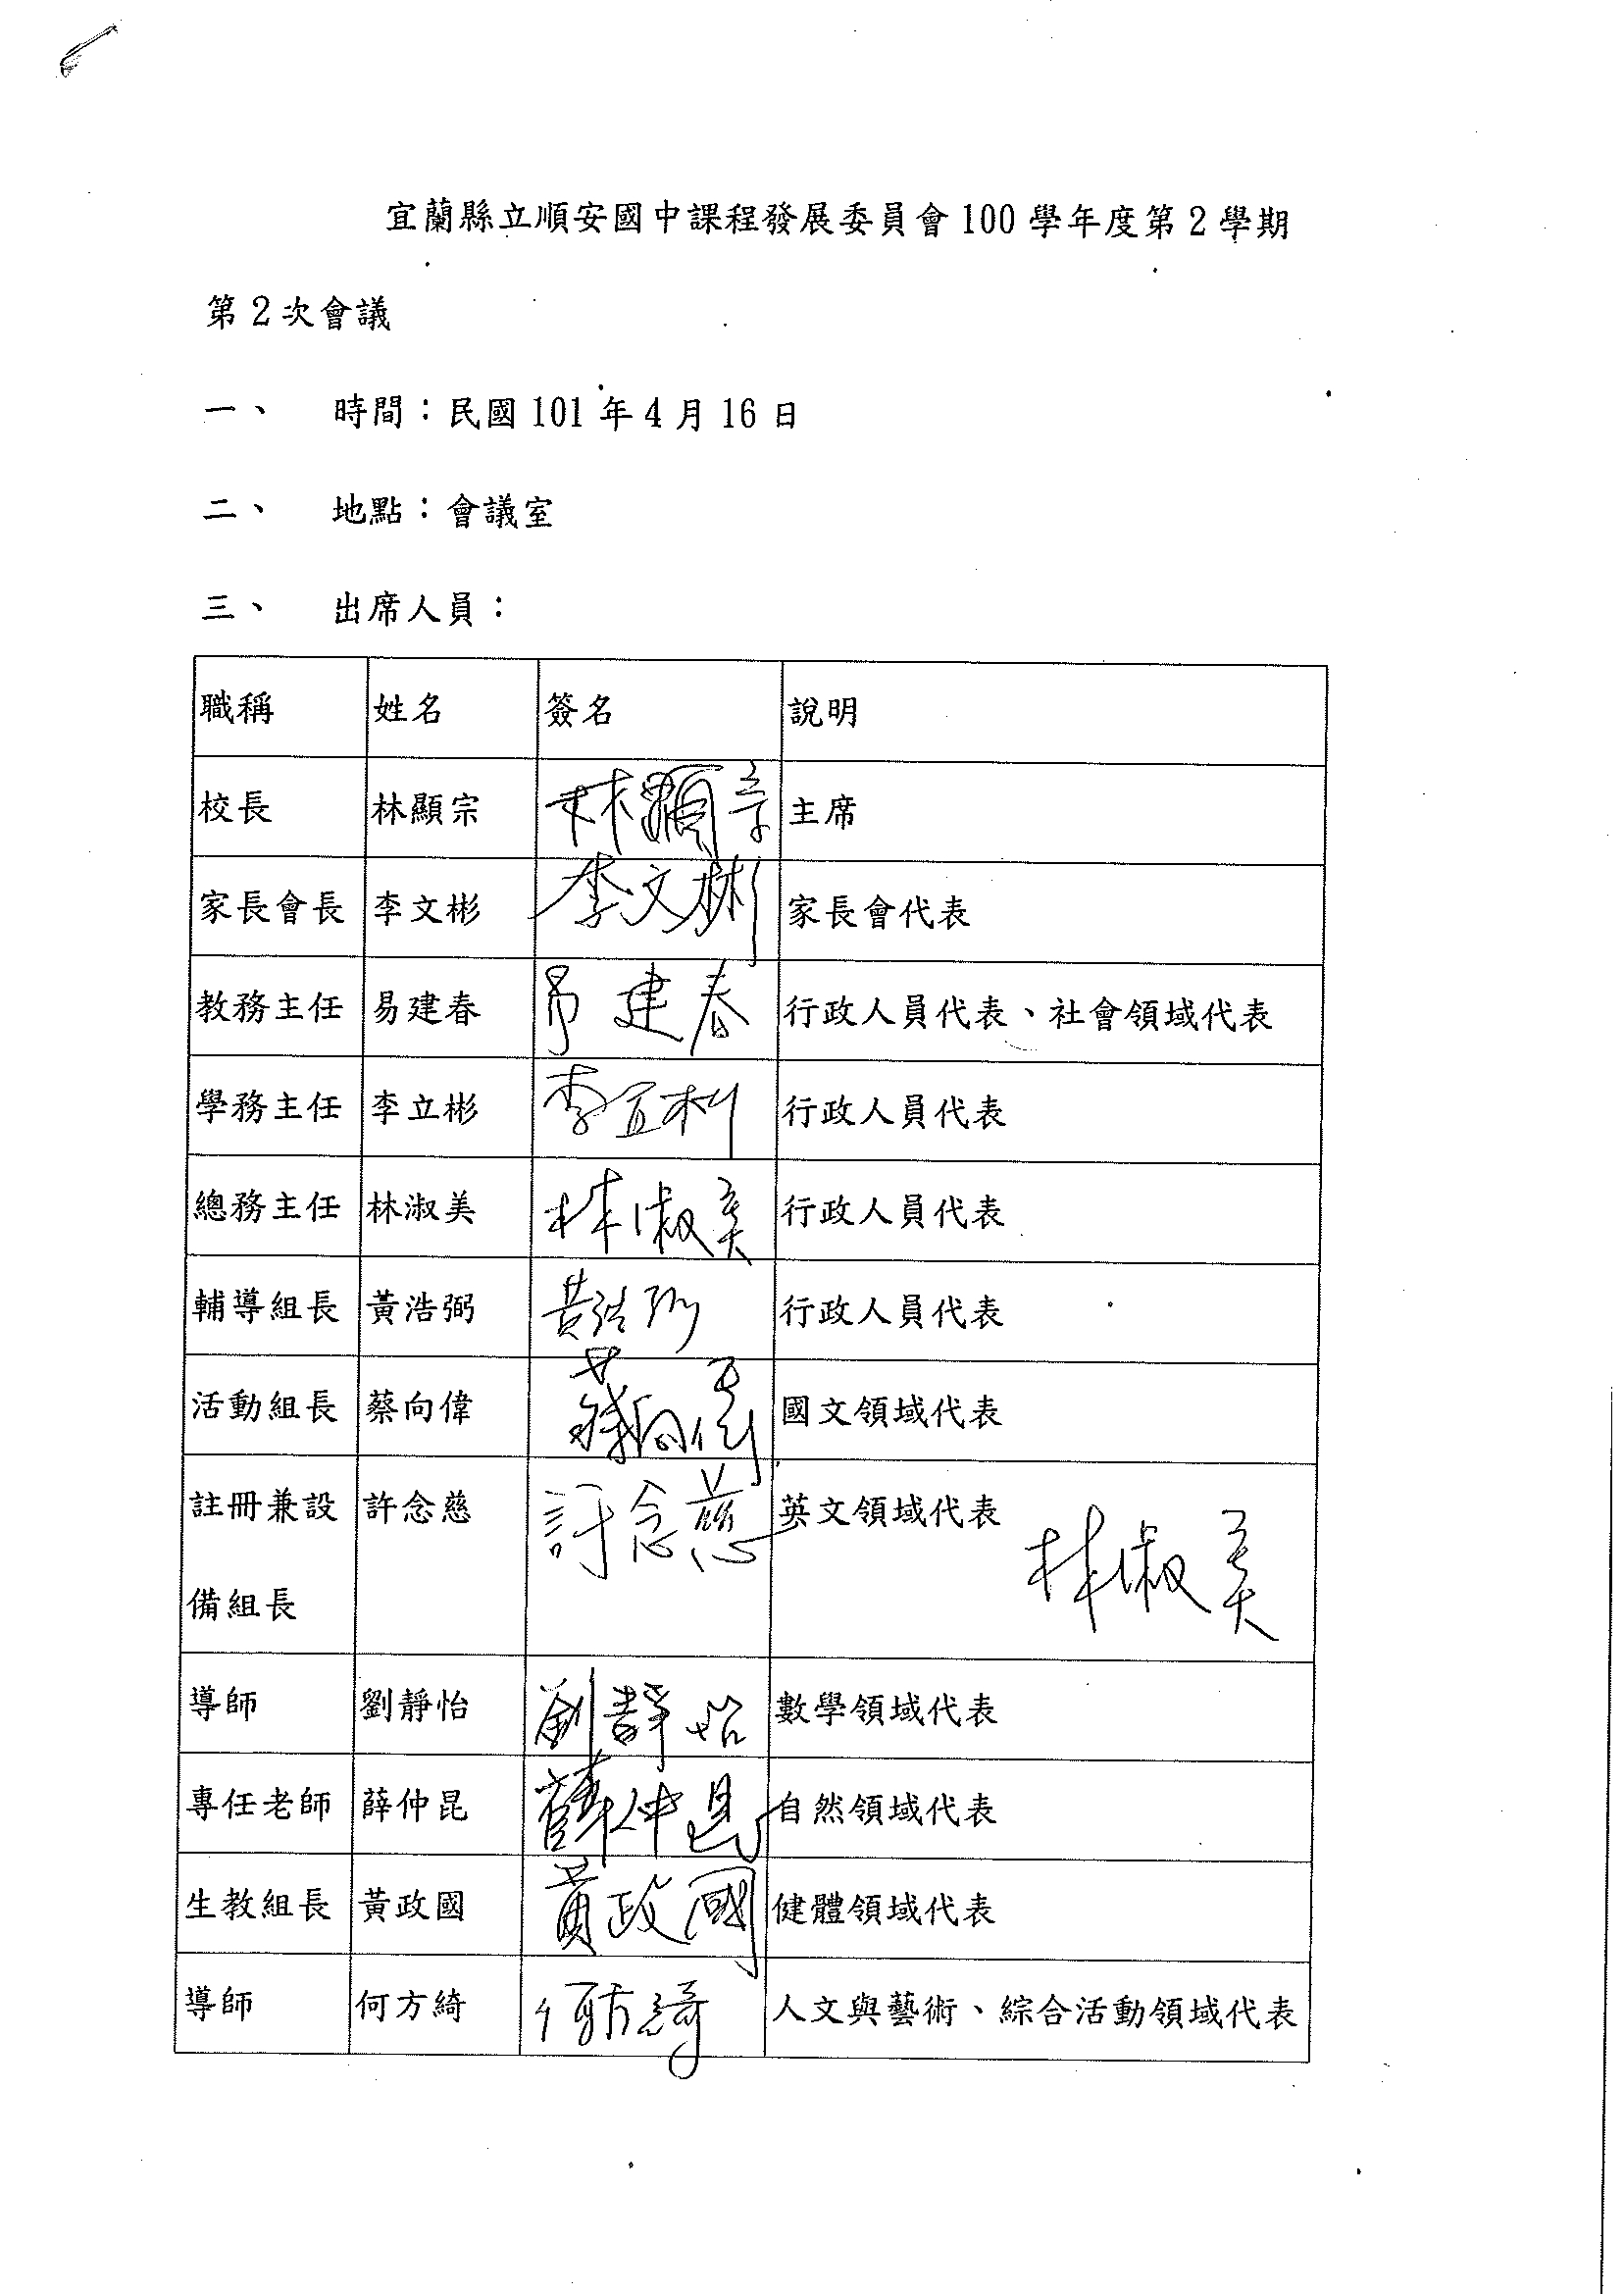 宜蘭縣立順安國中課程發展委員會 100 學年度第 2 學期
第 2 次會議
一、 時間：民國 101 年 4 月 16 日
二、 地點：會議室
三、 出席人員：
職稱 姓名 簽名 說明
校長 林顯宗 林顯宗 主席
家長會長 李文彬 李文彬 家長會代表
教務主任 易建春 易建春 行政人員代表、社會領域代表
學務主任 李立彬 李立彬 行政人員代表
總務主任 林淑美 林淑美 行政人員代表
輔導組長 黃浩弼 黃浩弼 行政人員代表
活動組長 蔡向偉 蔡向偉 國文領域代表
註冊兼設 許念慈 許念慈 英文領域代表 林淑美
備組長
導師 劉靜怡 劉靜怡 數學領域代表
專任老師 薛仲昆 薛仲昆 自然領域代表
生教組長 黃政國 黃政國 健體領域代表
導師 何方綺 何方綺 人文與藝術、綜合活動領域代表